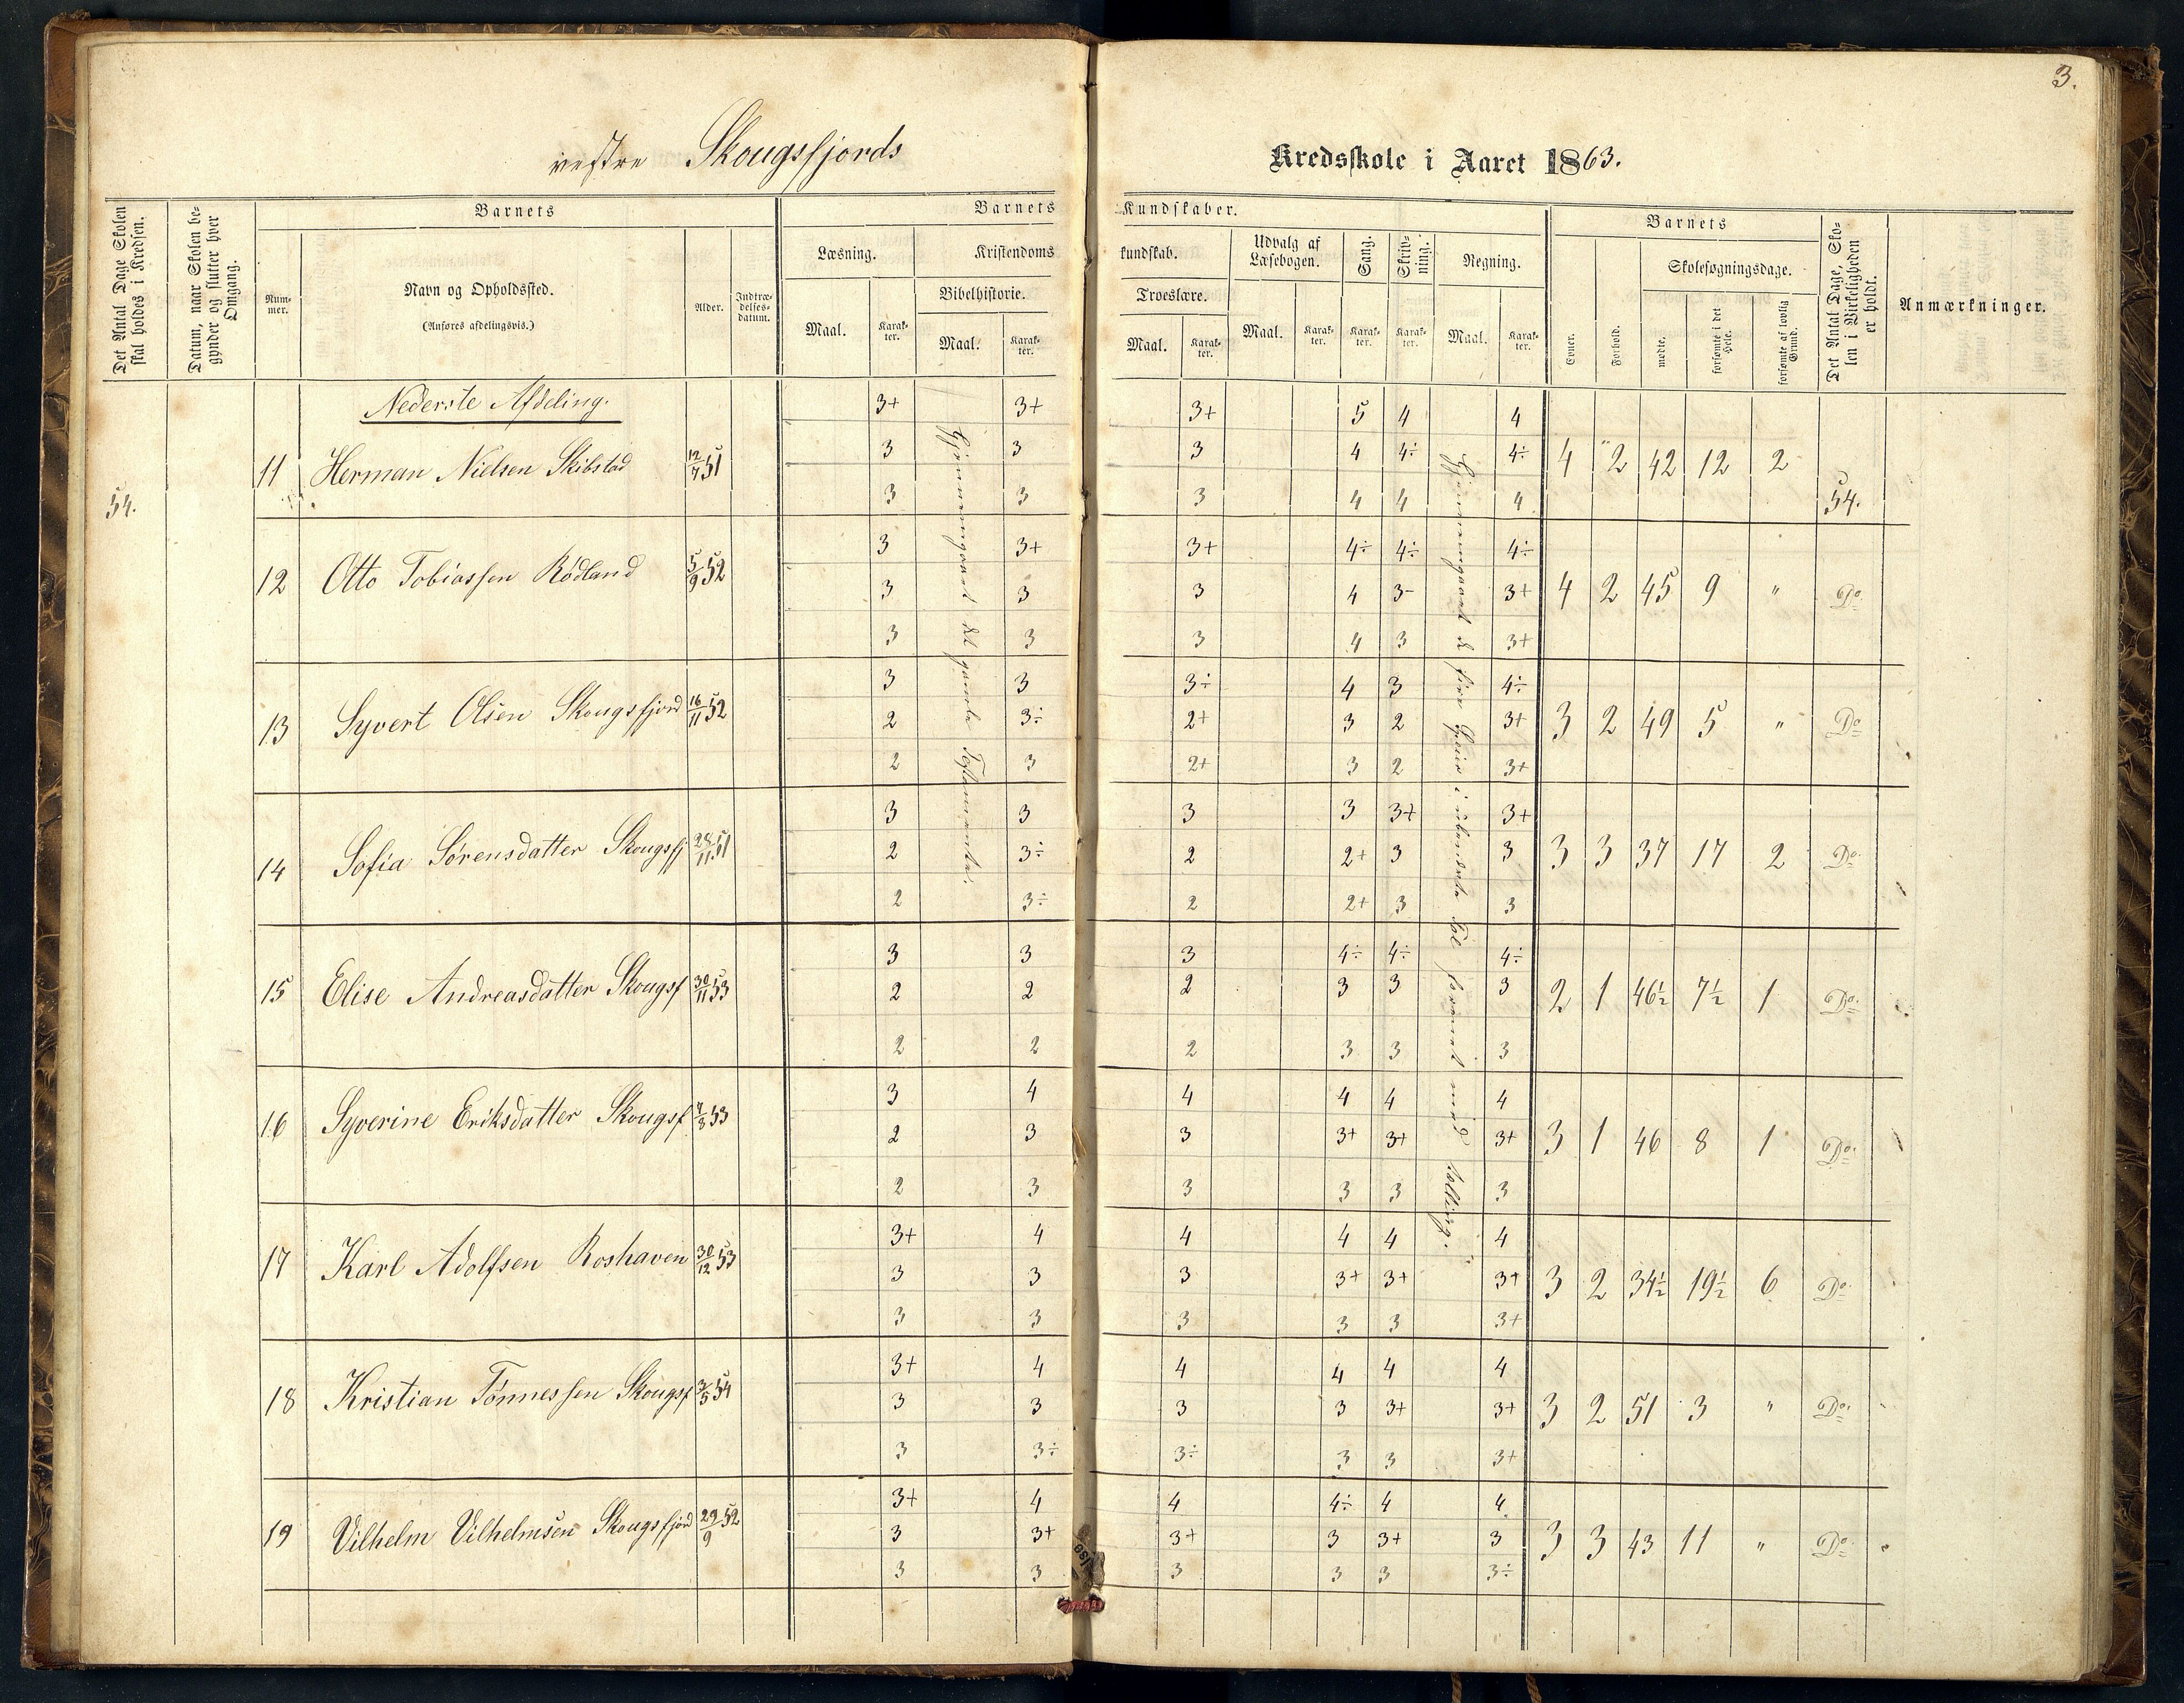 3.
vestre Skougsfjords Kredsskole i Aaret 1863.
Det Antal Dage Skolen skal holdes i Kredsen.
Datum, naar Skolen begynder og slutter hver Omgang.
Barnets
Nummer.
Navn og Opholdssted.
(Anføres afdelingsvis.)
Alder.
Indtrædelsesdatum.
Barnets Kundskaber.
Læsning.
Maal.
Karakter.
Kristendomskundskab.
Bibelhistorie.
Maal.
Karakter.
Troeslære.
Maal.
Karakter.
Udvalg af Læsebogen.
Maal.
Karakter.
Sang.
Karakter.
Skrivning.
Karakter.
Regning.
Maal.
Karakter.
Barnets
Evner.
Forhold.
Skolesøgningsdage.
mødte.
forsømte i det Hele.
forsømte af lovlig Grund.
Det Antal Dage, Skolen i Virkeligheden er holdt.
Anmærkninger.
Nederste Afdeling.
3+ 3+ 3+ 5 4 4
54. 11 Herman Nielsen Skibstad 12/7 51 3 3 3 4 4÷ 4÷ 4 2 42 12 2 54.
3 3 3 4 4 4
3 3+ 3+ 4÷ 4÷ 4÷
12 Otto Tobiassen Rødland 5/9 52 3 3 3 4 3- 3+ 4 2 45 9 " Do
3 3 3 4 3 3+
3 3 3÷ 4 3 4÷
13 Syvert Olsen Skougsfjord 16/11 52 2 3÷ 2+ 3 2 3+ 3 2 49 5 " Do
2 3 2+ 3 2 3+
3 3 3 3 3+ 3+
14 Sofia Sørensdatter Skougsfj 28/11 51 2 3÷ 2 2+ 3 3 3 3 37 17 2 Do
2 3÷ 2 2+ 3 3
3 3 3 4÷ 4÷ 4÷
15 Elise Andreasdatter Skougsf 30/11 53 2 2 2 3 3 3 2 1 46½ 7½ 1 Do
2 2 2 3 3 3
3 4 4 4 4 4
16 Syverine Eriksdatter Skougsf 53 2 3 3 3+ 3+ 3+ 3 1 46 8 1 Do
2 3 3 3 3 3
3+ 4 4 4 4 4
17 Karl Adolfsen Roshaven 30/12 53 3 3 3 3+ 3+ 3+ 3 2 34½ 19½ 6 Do
3 3 3 3 3 3+
3+ 4 4 4 4 4
18 Kristian Tønnessen Skougsf 3/5 54 3 3 3 3 3+ 3+ 3 2 51 3 " Do
3 3÷ 3÷ 3 3 3+
3+ 4 4 4÷ 4 4
19 Vilhelm Vilhelmsen Skougsfjord 29/9 52 3 3+ 3+ 3 3+ 3 3 3 43 11 " Do
3 3 3 3 3 3÷
Gjennemgaaet det gamle Testamente.
Gjennemgaaet de fire i Tal med